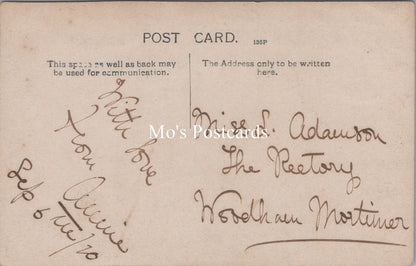 POST CARD.
136P
This space as well as back may
be used for communication.
The Address only to be written
here.
With love
from Annie
Sep 6th/10
Mo's Postcards
Miss S. Adamson
The Rectory
Woodham Mortimer